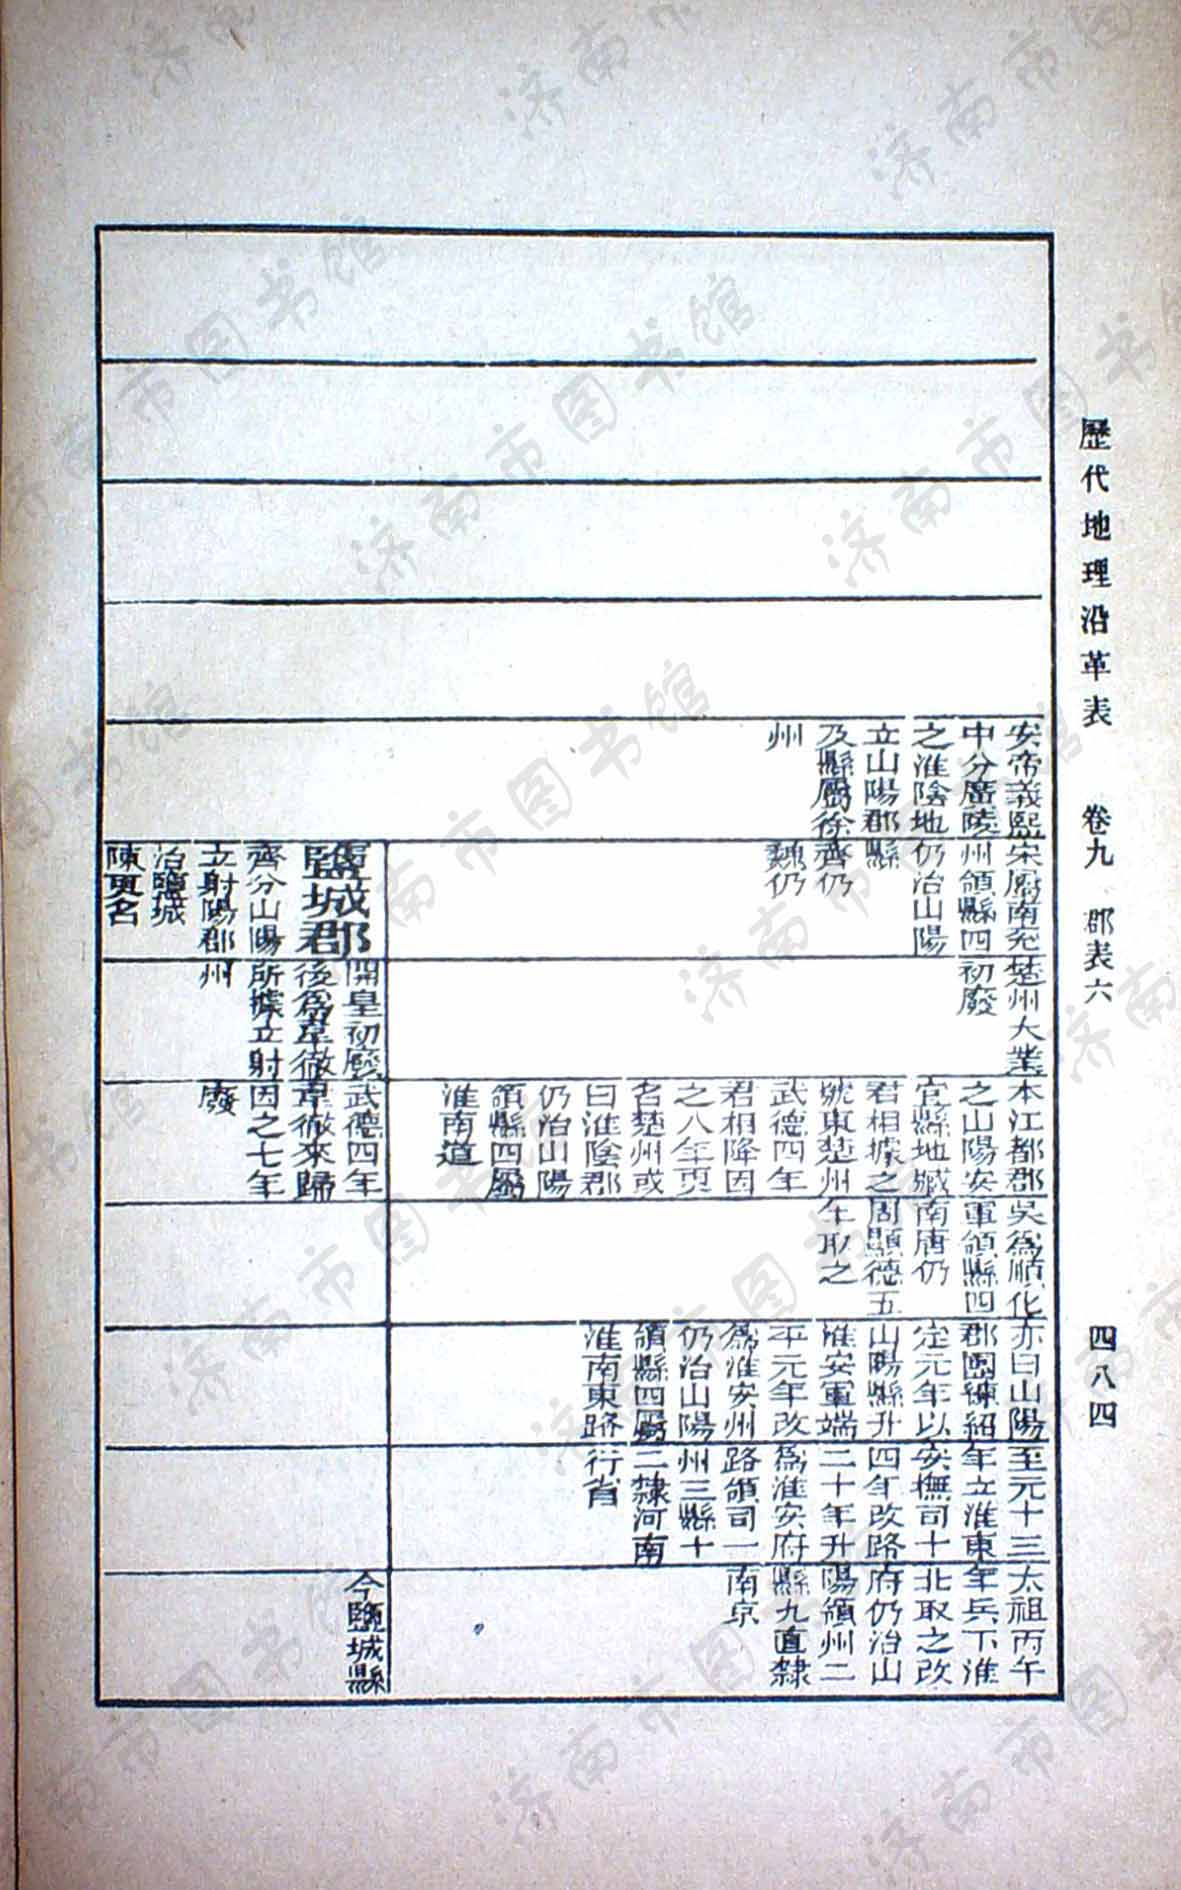 歷代地理沿革表 卷九 郡表六 四八四
安帝義熙
中分廣陵
之淮陰地
立山陽郡
及縣屬徐
州
宋屬南兗
州領縣四
仍治山陽
縣
齊仍
魏仍
楚州大業
初廢
本江都郡
之山陽安
宜縣地臧
君相據之
號東楚州
武德四年
君相降因
之八年更
名楚州或
曰淮陰郡
仍治山陽
領縣四屬
淮南道
吳爲順化
軍領縣四
南唐仍
周顯德五
年取之
亦曰山陽
郡團練紹
定元年以
山陽縣升
淮安軍端
平元年改
爲淮安州
仍治山陽
領縣四屬
淮南東路
至元十三
年立淮東
安撫司十
四年改路
二十年升
爲淮安府
路領司一
州三縣十
二隸河南
行省
太祖丙午
年兵下淮
北取之改
府仍治山
陽領州二
縣九直隸
南京
鹽城郡
齊分山陽
立射陽郡
治鹽城
陳更名
開皇初廢
後爲韋徹
所據立射
州
武德四年
韋徹來歸
因之七年
廢
今鹽城縣
济南市图书馆